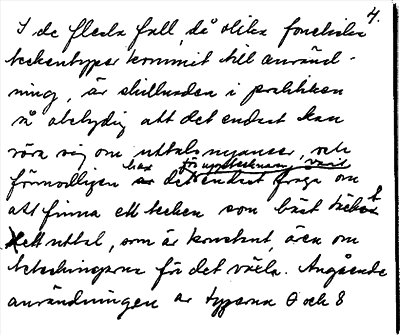 4.
I de flesta fall, då olika fonetiska
teckentyper kommit till använd-
ning, är skillnaden i praktiken
så obetydig att det endast kan
röra sig om uttalsnyanser, och
har för upptecknaren varit
förmodligen det endast fråga om
att finna ett tecken som bäst
ett uttal, som är konstant, även om
beteckningarna för det växla. Angående
användningen av typerna θ och 8